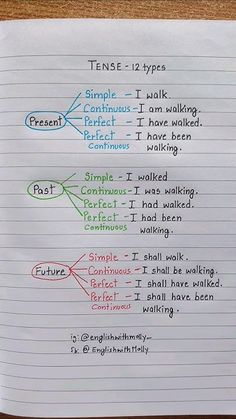 TENSE - 12 types
Present
Simple - I walk.
Continuous - I am walking.
Perfect - I have walked.
Perfect - I have been
Continuous walking.
Past
Simple - I walked
Continuous - I was walking.
Perfect - I had walked.
Perfect - I had been
Continuous walking.
Future
Simple - I shall walk.
Continuous - I shall be walking.
Perfect - I shall have walked.
Perfect - I shall have been
Continuous walking.
ig: @englishwithmolly_
fk: @ EnglishwithMolly